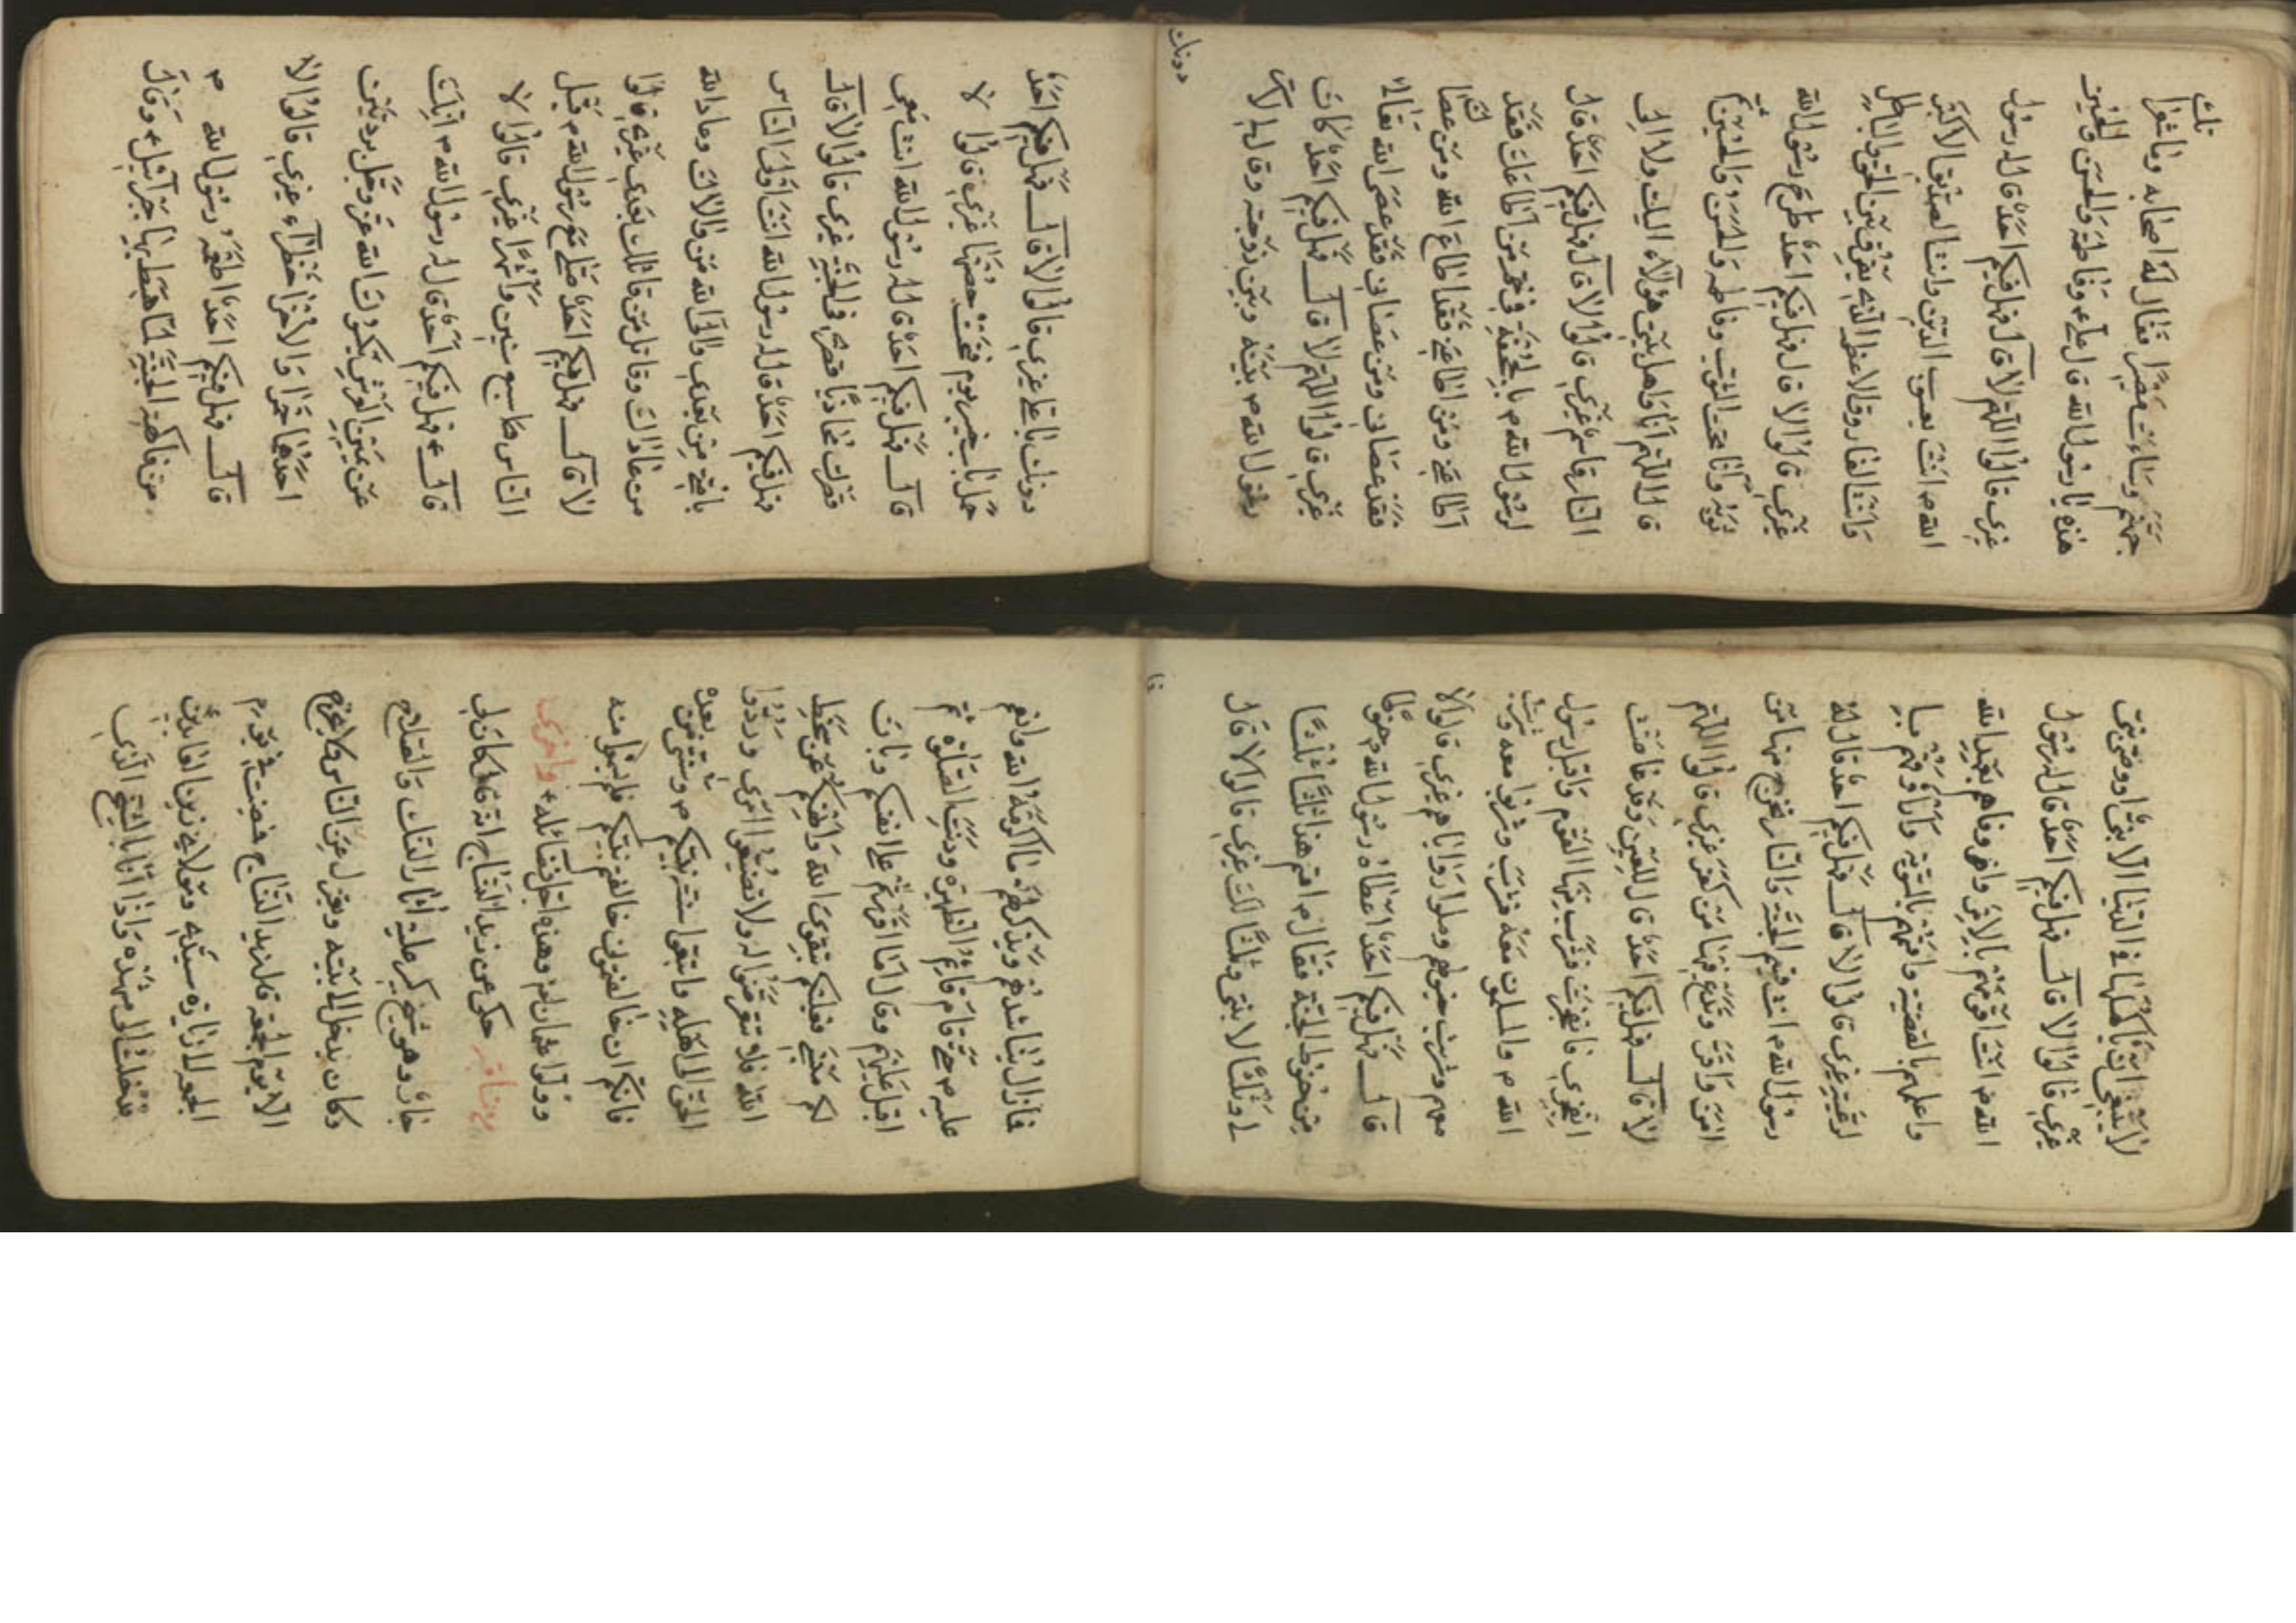 جهنم وساءت مصيرا فقال له اصحابه وما
هذه يا رسول الله قال علي ء وفاطمة والحسن والحسين
غيري قالوا اللهم لا قال فهل فيكم احد قال له رسول
الله م انت يعسوب الدين وانت الصديق الاكبر
وانت الفاروق الاعظم الذي يفرق بين الحق والباطل
غيري قالوا لا قال فهل فيكم احد طرح رسول الله
ثوبه وانا تحت الثوب وفاطمه والحسن والحسين ثم
قال اللهم انا واهل بيتي هؤلاء اليك ولا الى
النار قاسم غيري قالوا لا قال فهل فيكم احد قال
له رسول الله م بالجحفة في خم من اطاعك فقد
اطاعني ومن اطاعني فقد اطاع الله ومن عصاك
فقد عصاني ومن عصاني فقد عصى الله تعالى
غيري قالوا اللهم لا قال فهل فيكم احد كان
رسول الله م بينه وبين زوجته وقال له لا ستر
دونك
دونك يا علي غيري قالوا لا قال فهل فيكم احد
حمل باب خيبر يوم فتحت حصنها غيري قالوا لا
قال فهل فيكم احد قال له رسول الله انت معي
قصرك محاذيا قصري في الجنة غيري قالوا لا قال
فهل فيكم احد قال له رسول الله انت اولى الناس
بامتي من بعدي والى الله من والاك وعاد الله
من عاداك وقاتل من قاتلك بعدي غيري قالوا
لا قال فهل فيكم احد صلى مع رسول الله م قبل
الناس سبع سنين واشهرا غيري قالوا لا
قال ء فهل فيكم احد قال له رسول الله م انك
عن يمين العرش يكسوك الله عز وجل بردتين
احدهما حمرا والاخرى خضراء غيري قالوا لا
قال فهل فيكم احد اطعمه رسول الله م
من فاكهة الجنة لما هبط بها جبرائيل ء وقال
لا ينبغي ان ياكلها في الدنيا الا نبي او وصي نبي
غيري قالوا لا قال فهل فيكم احد قال له رسول
الله م انت اقومهم بامر الله واوفاهم بعهد الله
واعلمهم بالقضية واقسمهم بالسوية وارافهم
لرعية غيري قالوا لا قال فهل فيكم احد قال له
رسول الله م انت قسيم الجنة والنار تخرج منها من
امن واقر وتدع فيها من كفر غيري قالوا اللهم
لا قال فهل فيكم احد قال للعين وقد غاضت
انفجري فانفجرت فشرب منها القوم واقبل رسول
الله م والمسلمون معه فشرب وشربوا معه وشربت
معهم وشربت خيولهم وملوا رواياهم غيري قالوا لا
قال فهل فيكم احد اعطاه رسول الله م حنوطا
من حنوط الجنة فقال م اقسم هذا ثلثا ثلثا
لي وثلثا لك وثلثا لابنتي غيري قالوا لا قال
فا
فما زال يناشدهم ويذكرهم ما اكرمه الله وانعم
عليه م حتى قام قائم الظهيره ودنت الصلوة ثم
اقبل عليهم وقال اما اذا اقررتم على انفسكم وبان
لكم فعليكم بتقوى الله وانهيكم عن سخط
الله فلا تتعرضوا له ولا تضيعوا امري وردوا
الحق الى اهله واتبعوا سنة نبيكم م وسنتي من بعده
فانكم ان خالفتموني خالفتم نبيكم م
وولوا عثمان وهذه اجل فضائله ء واخرى
حكي عن زيد النساج انه قال كان لي
جار وهو شيخ كبير عليه اثار النسك والصلاح
وكان يدخل الى بيته ويعزل عن الناس فلا يخرج
الا يوم الجمعة قال زيد النساج فمضيت في يوم
الجمعة لزيارة سيدي ومولاي زين العابدين
فدخلت الى مشهده واذا انا بالشيخ الذي